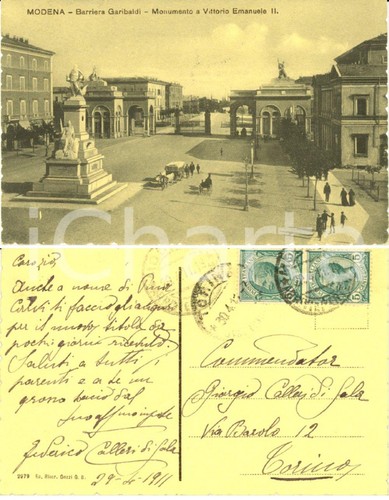 MODENA - Barriera Garibaldi - Monumento a Vittorio Emanuele II.
iCharta
Caro zio
Anche a nome di
faccio gli auguri
per il nuovo titolo da
pochi giorni ricevuto.
Saluti a tutti i
parenti e a te un
grosso bacio dal
tuo aff nipote
Federico Calleri di Sala
29-4-1911
TORINO
Commendator
Giorgio Calleri di Sala
Via Barolo 12
Torino